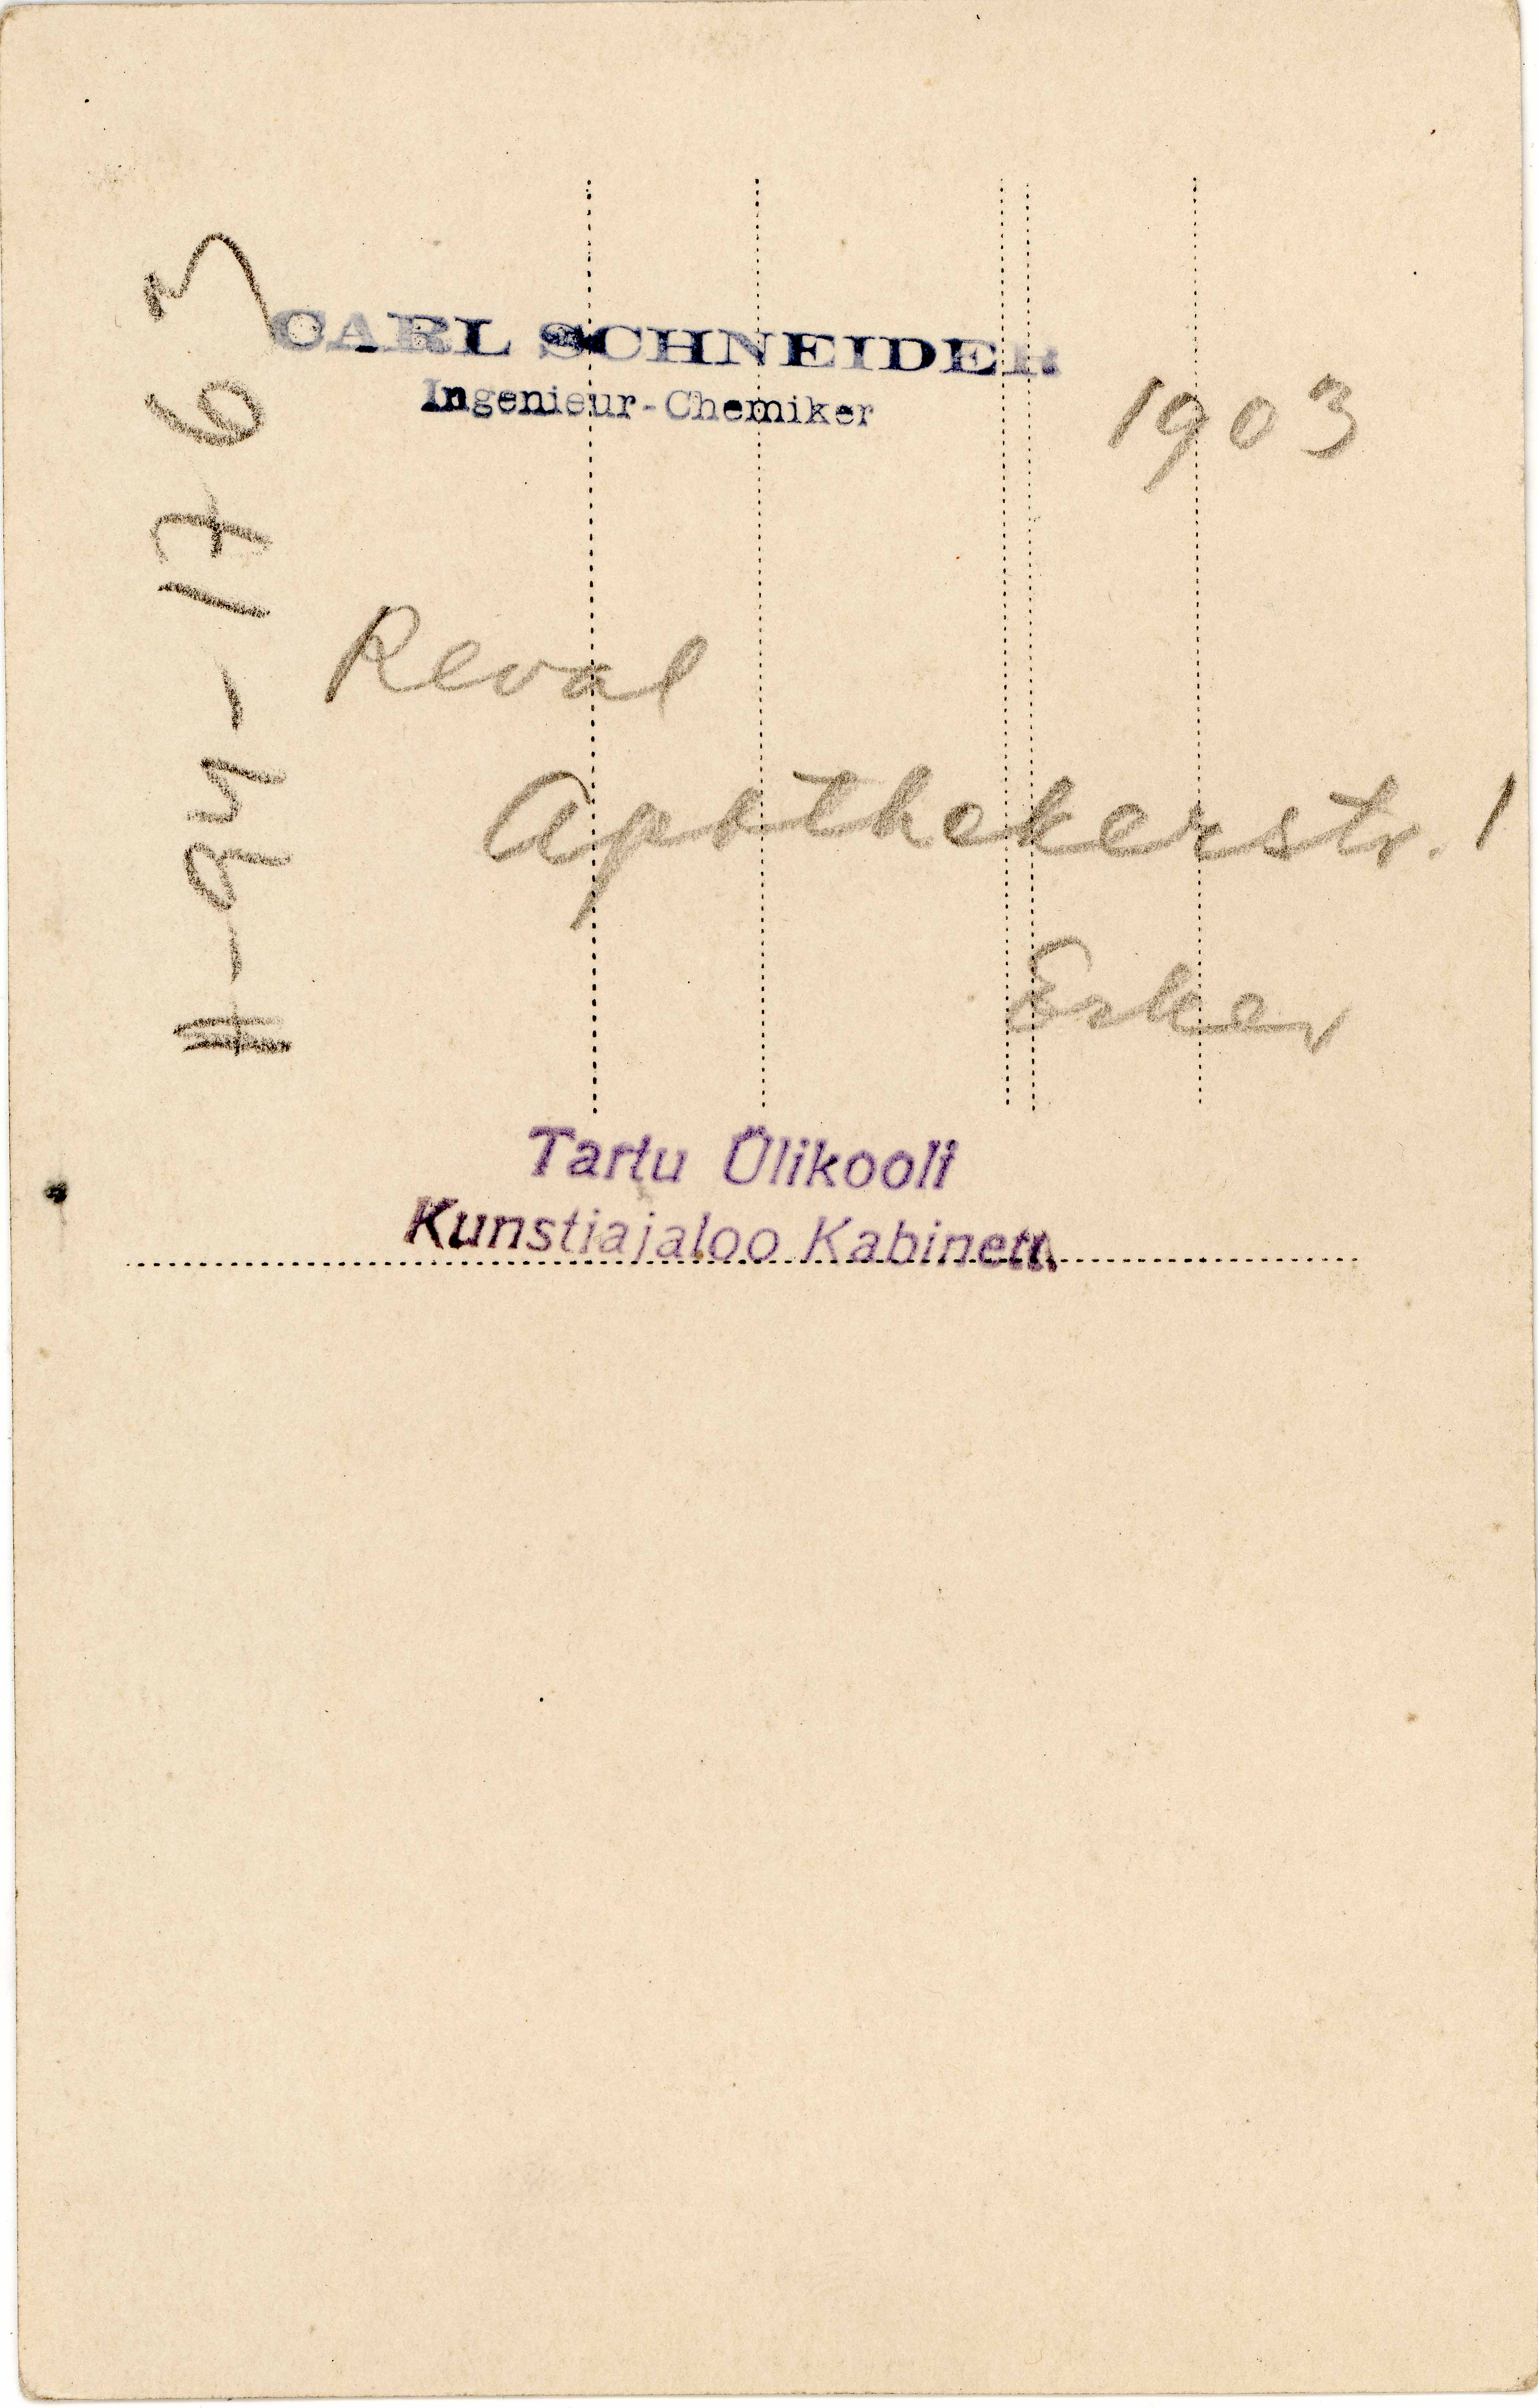 CARL SCHNEIDER
Ingenieur-Chemiker
1903
Reval
Apothekerstr. 1
Erker
Tartu Ülikooli
Kunstiajaloo Kabinett
II-94-1763